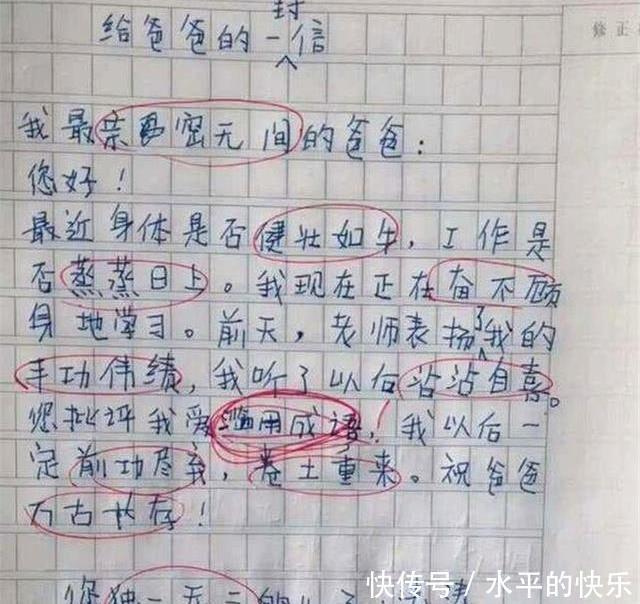 给爸爸的一封信
修正
我最亲密无间的爸爸：
您好！
最近身体是否健壮如牛，工作是
否蒸蒸日上。我现在正在奋不顾
身地学习。前天，老师表扬了我的
丰功伟绩，我听了以后沾沾自喜。
您批评我爱滥用成语，我以后一
定前功尽弃，卷土重来。祝爸爸
万古长存！
您独一无二的
快传号/水平的快乐